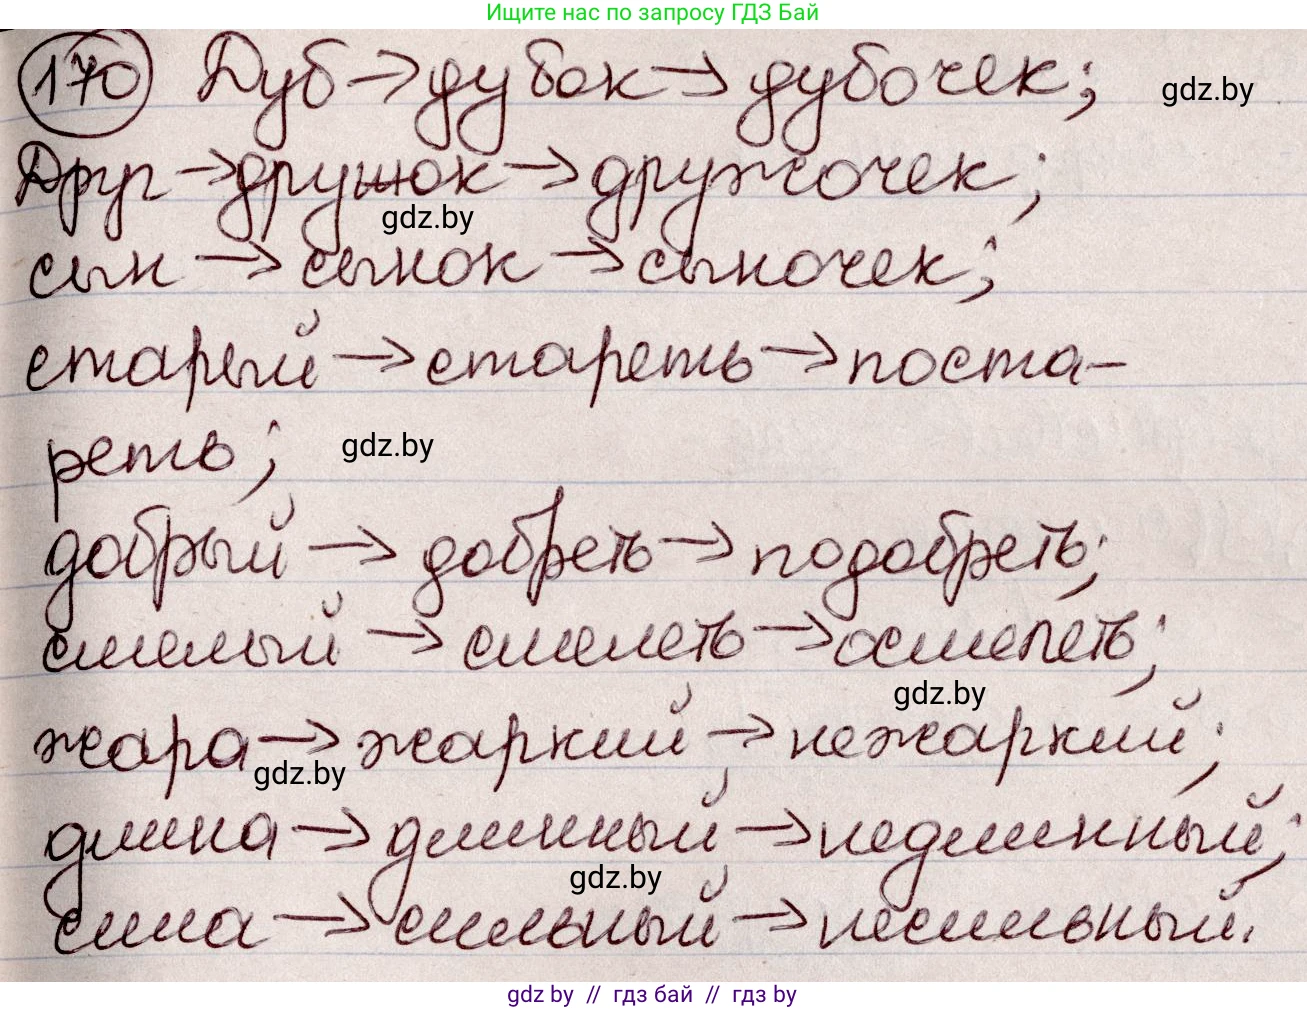 Ищите нас по запросу ГДЗ Бай
170 Дуб → дубок → дубочек;
gdz.by
Друг → дружок → дружочек;
gdz.by
сын → сынок → сыночек;
старый → стареть → поста-
реть;
gdz.by
добрый → добреть → подобреть;
смелый → смелеть → осмелеть;
gdz.by
жара → жаркий → нежаркий;
gdz.by
длина → длинный → недлинный;
gdz.by
сила → сильный → несильный.
gdz.by // гдз бай // гдз by